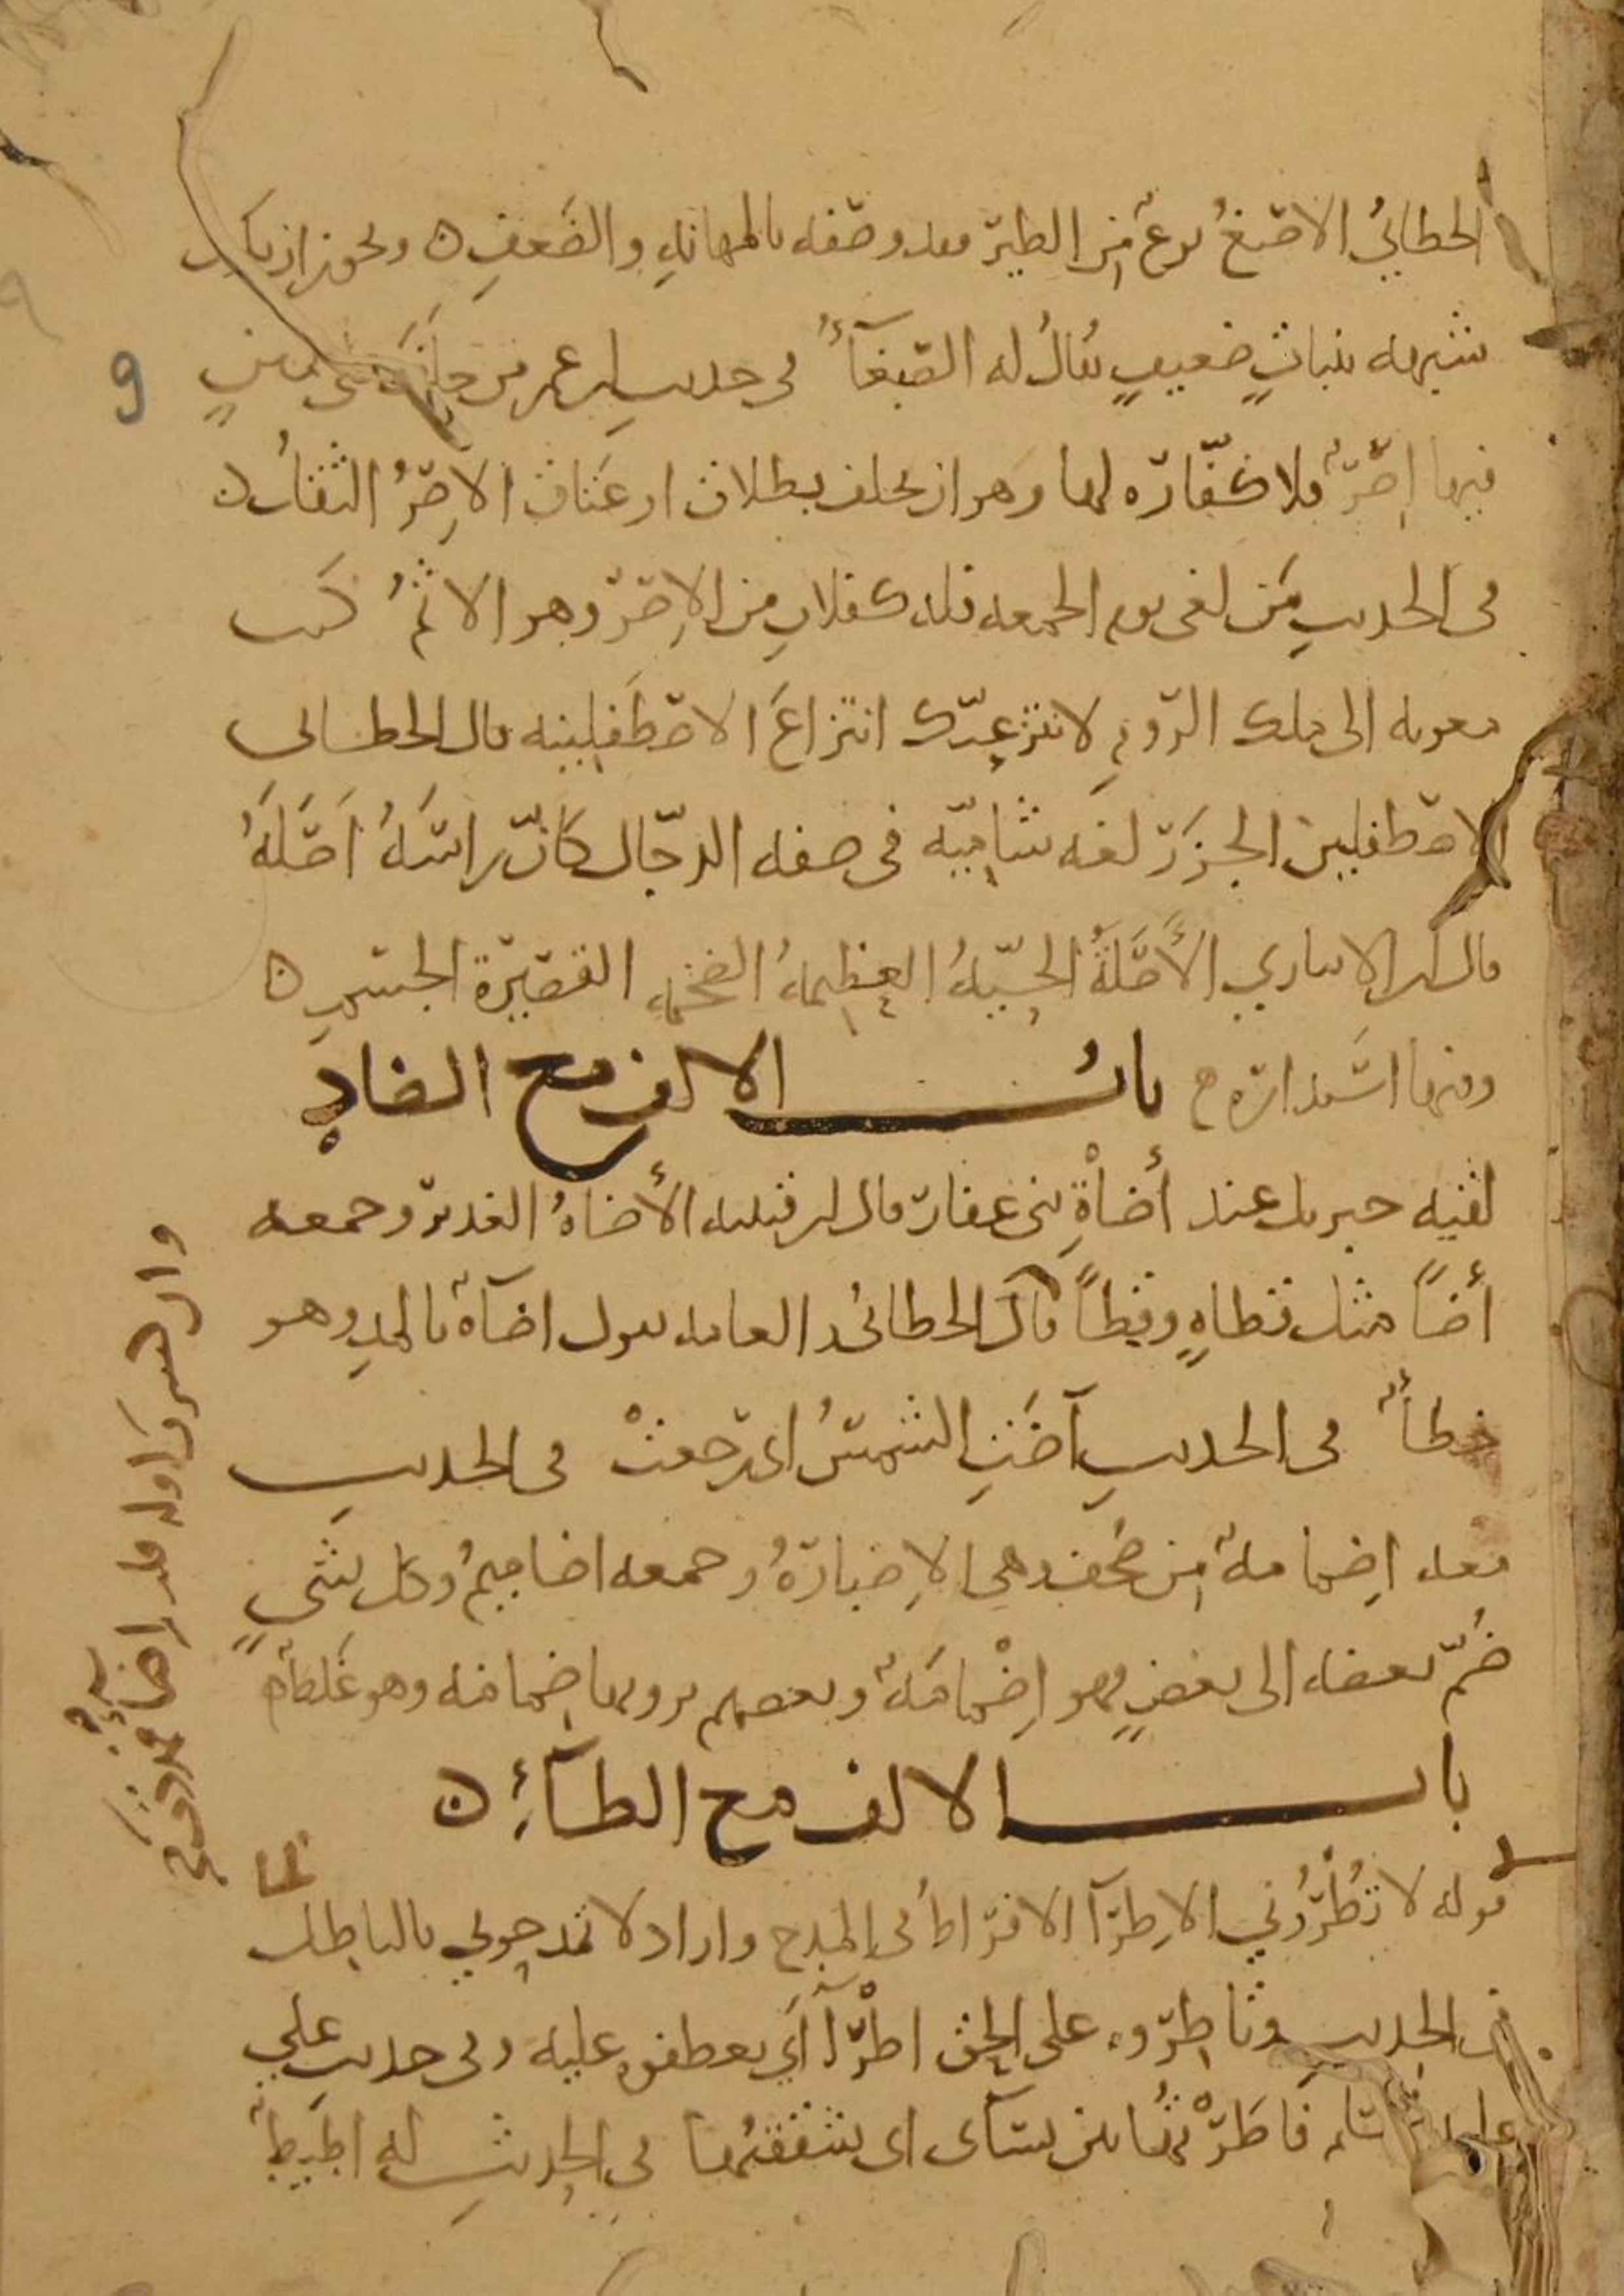 الخطابي الاصبغ نوع من الطير فقد وصفه بالمهانه والضعف ويجوز ان يكون
شبهه بنبات ضعيف يقال له الصبغاء في حديث ابن عمر من حلف على يمين
فيها اصر فلا كفارة لها وهو ان يحلف بطلاق او عتاق الاصر الثقل
في الحديث من لغى يوم الجمعه فله كفلان من الاصر وهو الاثم كتب
معويه الى ملك الروم لانتزعنك انتزاع الاصطفلينه قال الخطابي
الاصطفلين الجزر لغه شاميه في صفه الدجال كان راسه اصله
قال ابن الانباري الأصلة الحيه العظيمه الضخمه القصيرة الجسم
وفيها استدارة باب الالف مع الضاد
لقيه جبريل عند أضاة بني غفار قال ابن قتيبه الأضاة الغدير وجمعه
أضا مثل قطاة وقطا قال الخطابي العامه تقول اضآة بالمد وهو
خطأ في الحديث آضت الشمس اي رجعت في الحديث
معه اضمامة من صحف وهي الاضبارة وجمعه اضاميم وكل شي
ضم بعضه الى بعض فهو اضمامة وبعضهم يرويها ضمامه وهو غلط
باب الالف مع الطاء
قوله لا تطروني الاطرا الافراط في المدح واراد لا تمدحوني بالباطل
في الحديث وتاطروه على الحق اطرا أي يعطفوه عليه وفي حديث علي
عليه السلم فاطرتها بين نسآى اى شققتها في الحديث له اطيط